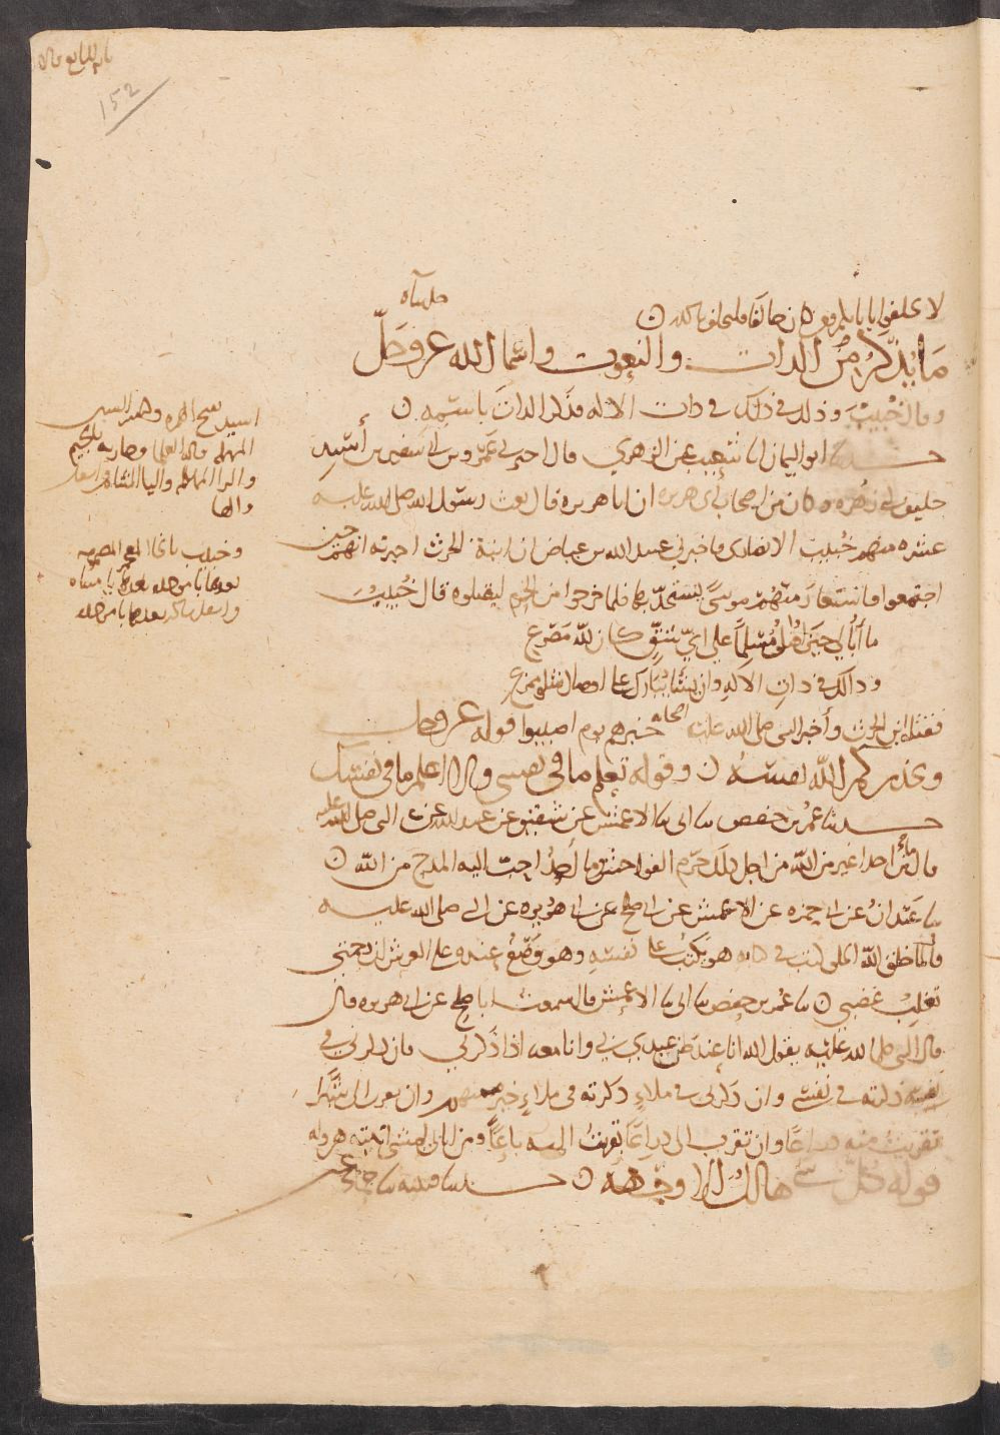 152
لا تحلفوا بابايكم ومن كان حالفا فليحلف بالله
ما يذكر من الذات والنعوت واسما الله عز وجل
وقال خبيب وذلك في ذات الاله فذكر الذات باسمه
حدثنا ابو اليمان انا شعيب عن الزهري قال اخبرني عمرو بن ابي سفين بن أسيد
حليف لبني زهره وكان من اصحاب ابي هريره ان ابا هريره قال بعث رسول الله صلى الله عليه
عشره منهم خبيب الانصاري فاخبرني عبيد الله بن عياض ان ابنة الحرث اخبرته انهم حين
اجتمعوا استعار منها موسى يستحد بها فلما خرجوا من الحرم ليقتلوه قال خبيب
ما أبالي حين اقتل مسلما على اي شق كان لله مصرعي
وذلك في ذات الاله وان يشا يبارك على اوصال شلو ممزع
فقتله ابن الحرث وأخبر النبي صلى الله عليه اصحابه خبرهم يوم اصيبوا قوله عز وجل
ويحذركم الله نفسه وقوله تعلم ما في نفسي ولا اعلم ما في نفسك
حدثنا عمر بن حفص نا ابي نا الاعمش عن شقيق عن عبد الله عن النبي صلى الله عليه
قال ما من احد اغير من الله من اجل ذلك حرم الفواحش وما أحد احب اليه المدح من الله
نا عبدان عن ابي حمزه عن الاعمش عن ابي صالح عن ابي هريره عن النبي صلى الله عليه
قال لما خلق الله الخلق كتب في كتابه هو يكتب على نفسه وهو وضع عنده على العرش ان رحمتي
تغلب غضبي نا عمر بن حفص نا ابي نا الاعمش قال سمعت ابا صالح عن ابي هريره قال
قال النبي صلى الله عليه يقول الله انا عند ظن عبدي بي وانا معه اذا ذكرني فان ذكرني في
نفسه ذكرته في نفسي وان ذكرني في ملاء ذكرته في ملاء خير منهم وان تقرب الي شبرا
تقربت منه ذراعا وان تقرب الي ذراعا تقربت اليه باعا ومن اتاني يمشي اتيته هروله
قوله كل شي هالك الا وجهه حدثنا قتيبه نا حماد عن
اسيد بفتح الهمزه وكسر السين
المهمله
وخبيب بالخا المعجمه المضمومه